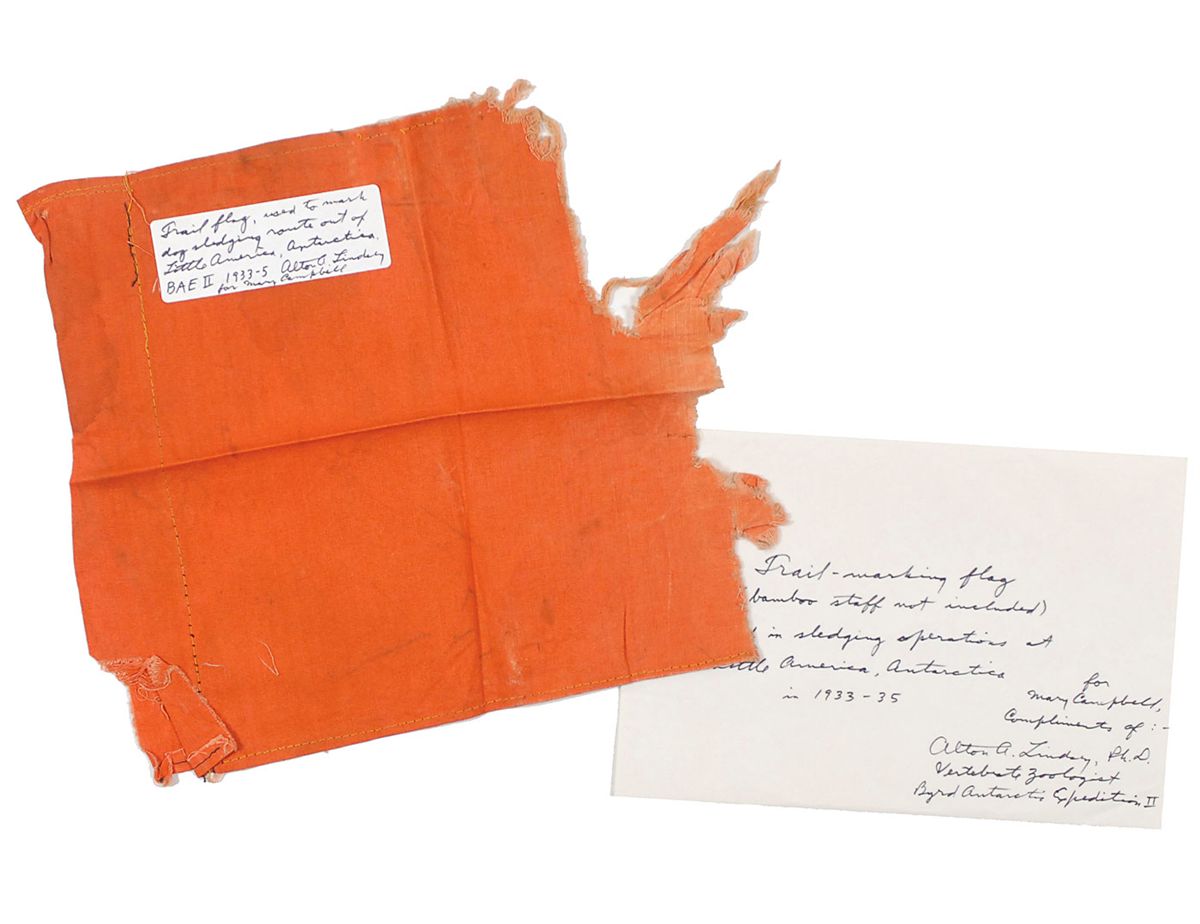 Trail flag, used to mark
dog sledging route out of
Little America, Antarctica.
BAE II 1933-5 Alton A. Lindsey
for Mary Campbell
Trail-marking flag
(bamboo staff not included)
in sledging operations at
Little America, Antarctica
in 1933-35
for
Mary Campbell,
Compliments of :-
Alton A. Lindsey, Ph.D.
Vertebrate Zoologist
Byrd Antarctic Expedition II